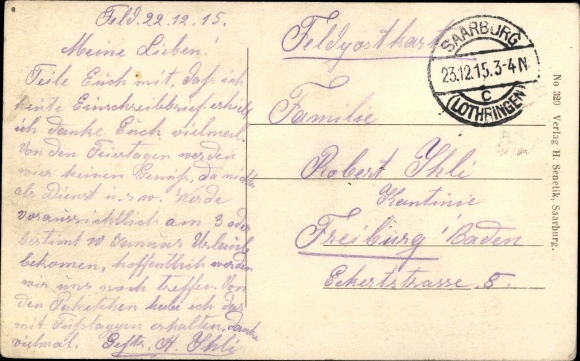 Feld. 22.12.15.
Meine Lieben!
Teile Euch mit, daß ich
heute Einschreibbrief erhielt
ich danke Euch vielmal.
Von den Feiertagen werden
wier keinen Genuß, da nichts
als Dienst u.s.w. Werde
voraussichtlich am 3 oder
bestimt 10 Urlaub
bekomen, hoffentlich werden
wir uns noch treffen. Von
den Paketchen habe ich das
mit Fußlappen erhalten, danke
vielmal. Gefr. A. Ihli
Feldpostkarte
SAARBURG
23.12.15.3-4N
c
(LOTHRINGEN)
Familie
Robert Ihli
Kantinie
Freiburg Baden
Eckertstrasse. 8.
No 320 Verlag H. Senetik, Saarburg.